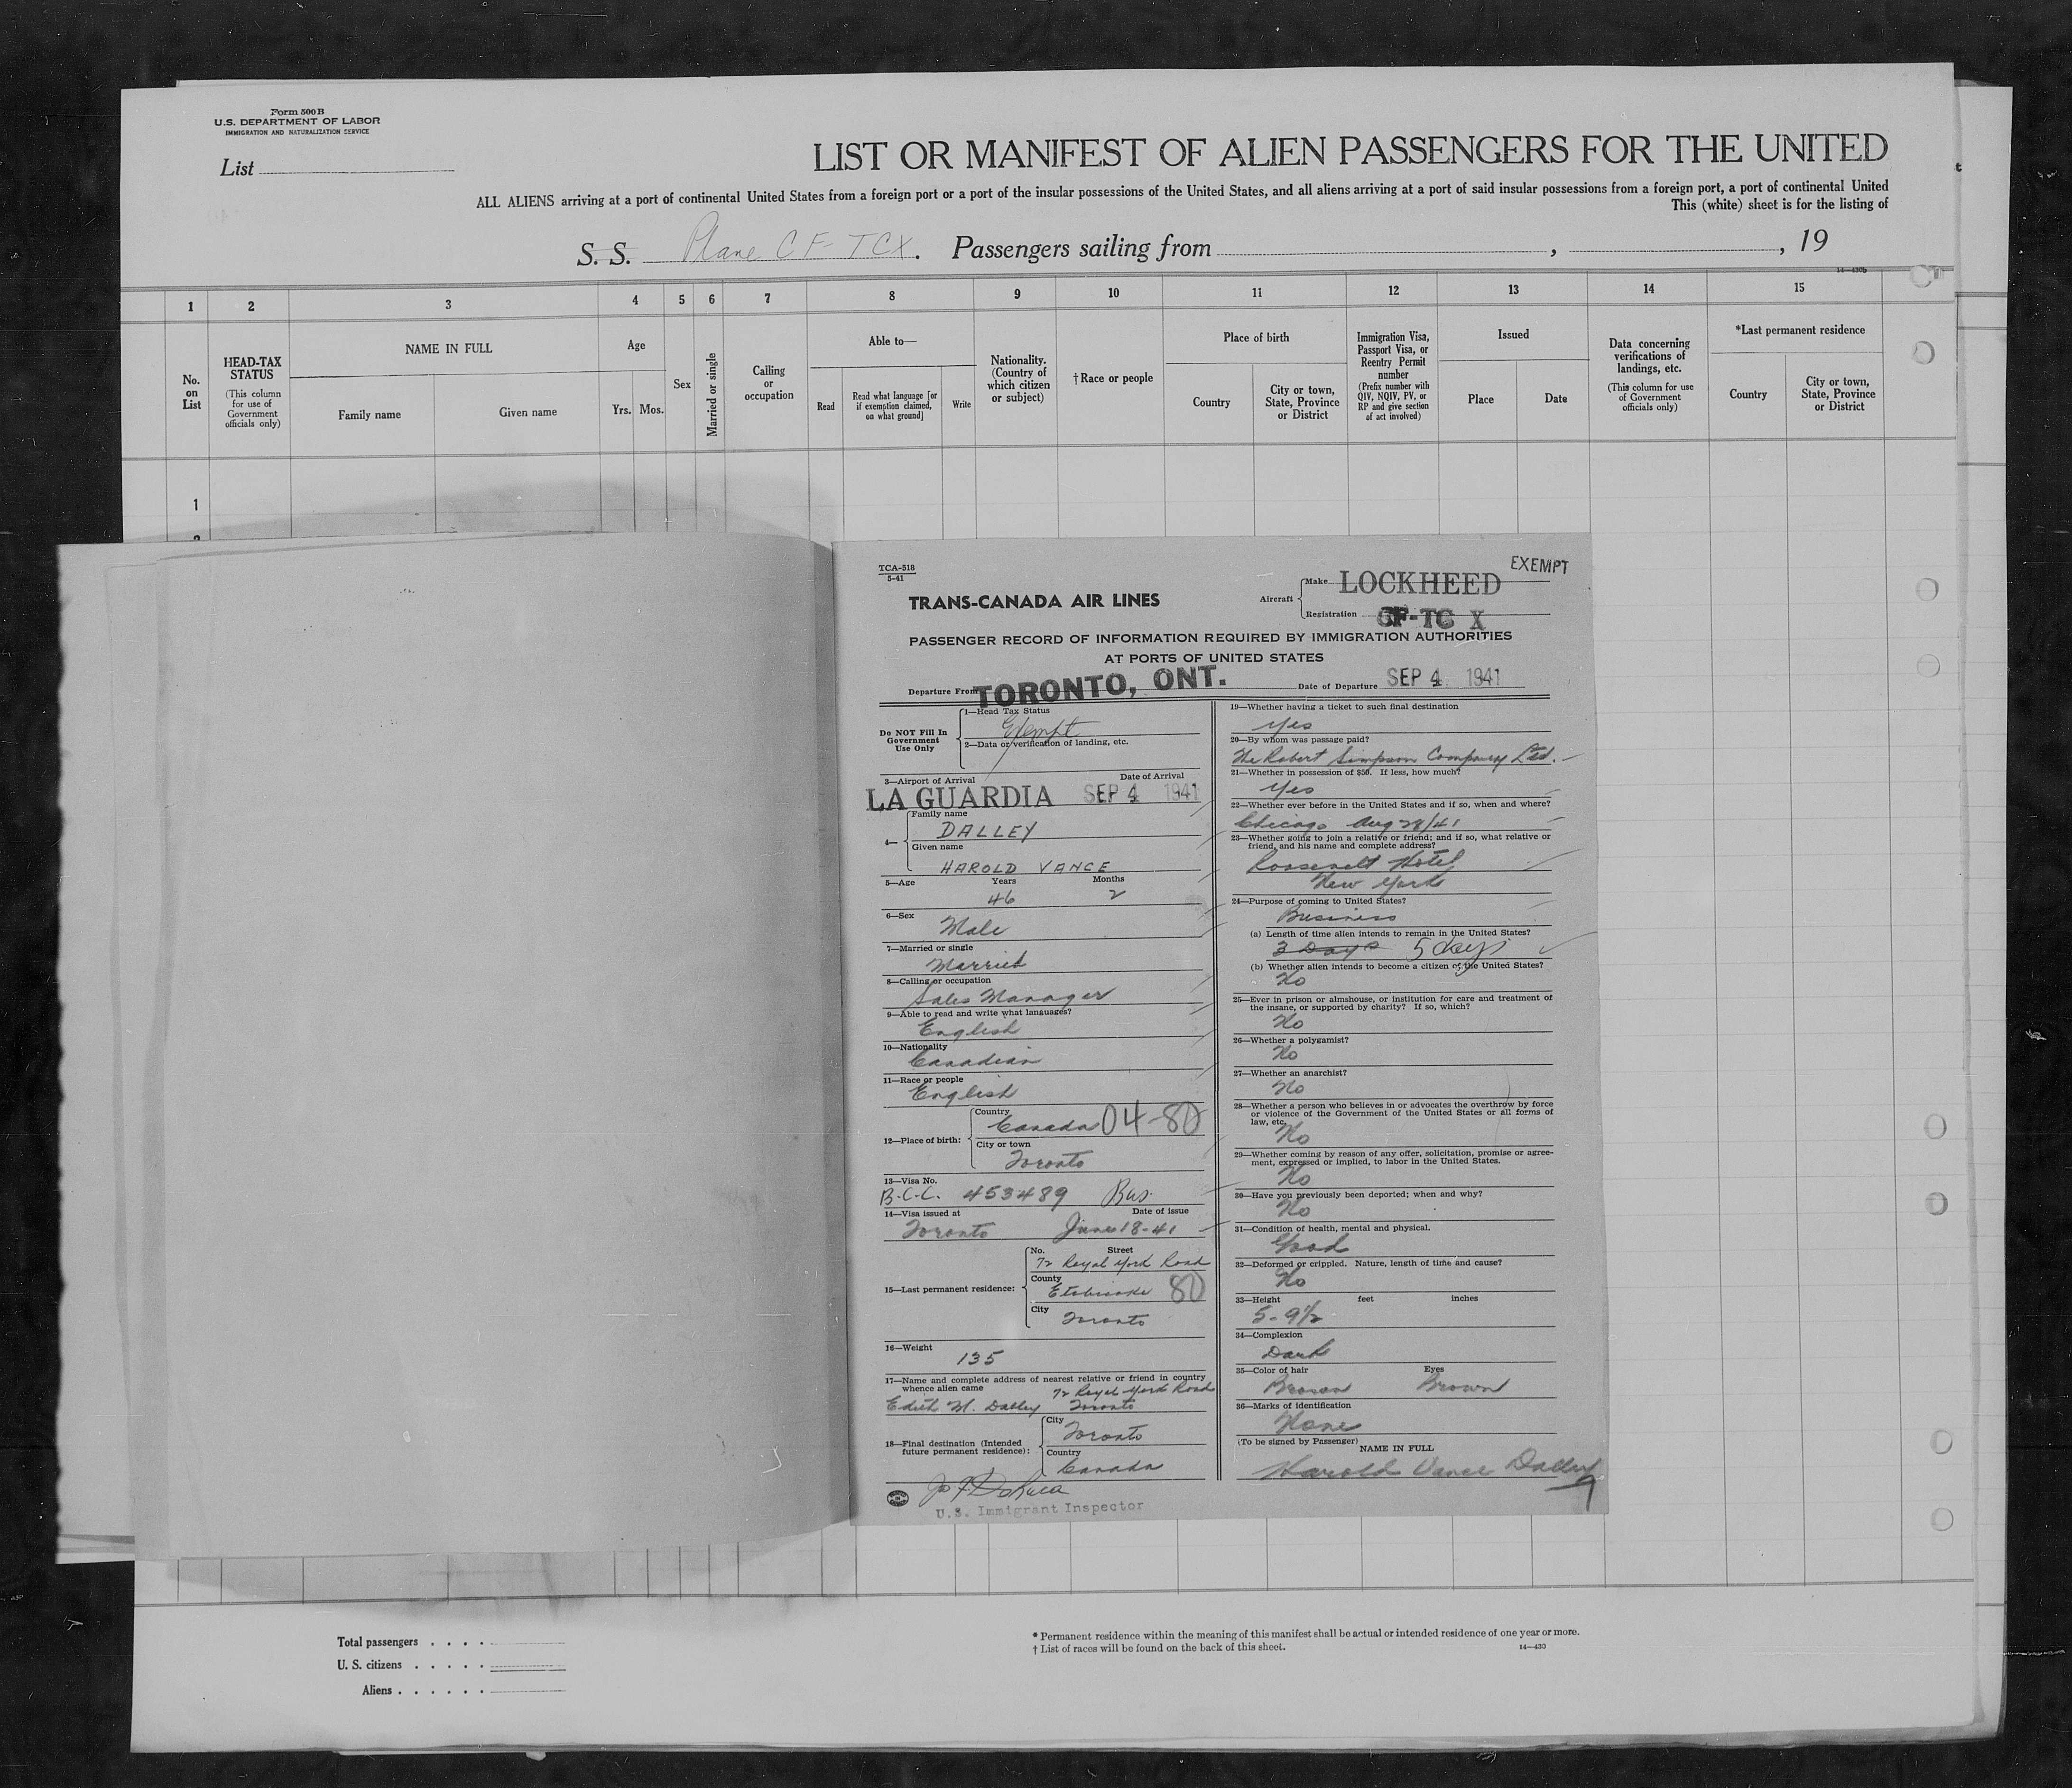 Form 500 B
U.S. DEPARTMENT OF LABOR
IMMIGRATION AND NATURALIZATION SERVICE
List
LIST OR MANIFEST OF ALIEN PASSENGERS FOR THE UNITED
ALL ALIENS arriving at a port of continental United States from a foreign port or a port of the insular possessions of the United States, and all aliens arriving at a port of said insular possessions from a foreign port, a port of continental United
This (white) sheet is for the listing of
S. S. Plane CF-TCX. Passengers sailing from , , 19
14—430b
1 2 3 4 5 6 7 8 9 10 11 12 13 14 15
No. on List
HEAD-TAX STATUS
(This column for use of Government officials only)
NAME IN FULL
Family name
Given name
Age
Yrs. Mos.
Sex
Married or single
Calling or occupation
Able to—
Read
Read what language [or if exemption claimed, on what ground]
Write
Nationality. (Country of which citizen or subject)
†Race or people
Place of birth
Country
City or town, State, Province or District
Immigration Visa, Passport Visa, or Reentry Permit number
(Prefix number with QIV, NQIV, PV, or RP and give section of act involved)
Issued
Place
Date
Data concerning verifications of landings, etc.
(This column for use of Government officials only)
*Last permanent residence
Country
City or town, State, Province or District
1
TCA-518
5-41
EXEMPT
TRANS-CANADA AIR LINES
Aircraft
Make LOCKHEED
Registration CF-TC X
PASSENGER RECORD OF INFORMATION REQUIRED BY IMMIGRATION AUTHORITIES
AT PORTS OF UNITED STATES
Departure From TORONTO, ONT. Date of Departure SEP 4 1941
Do NOT Fill In
Government
Use Only
1—Head Tax Status
Exempt
2—Data or verification of landing, etc.
3—Airport of Arrival Date of Arrival
LA GUARDIA SEP 4 1941
4—
Family name
DALLEY
Given name
HAROLD VANCE
5—Age Years Months
46 2
6—Sex
Male
7—Married or single
Married
8—Calling or occupation
Sales Manager
9—Able to read and write what languages?
English
10—Nationality
Canadian
11—Race or people
English
12—Place of birth:
Country
Canada 04-80
City or town
Toronto
13—Visa No.
B.C.C. 453489 Bus.
14—Visa issued at Date of issue
Toronto June 18-41
15—Last permanent residence:
No. Street
72 Royal York Road
County
Etobicoke 80
City
Toronto
16—Weight
135
17—Name and complete address of nearest relative or friend in country
whence alien came 72 Royal York Road
Edith M. Dalley Toronto
18—Final destination (Intended
future permanent residence):
City
Toronto
Country
Canada
U.S. Immigrant Inspector
19—Whether having a ticket to such final destination
Yes
20—By whom was passage paid?
The Robert Simpson Company Ltd.
21—Whether in possession of $50. If less, how much?
Yes
22—Whether ever before in the United States and if so, when and where?
Chicago Aug 28/41
23—Whether going to join a relative or friend; and if so, what relative or
friend, and his name and complete address?
Roosevelt Hotel
New York
24—Purpose of coming to United States?
Business
(a) Length of time alien intends to remain in the United States?
3 Days 5 days
(b) Whether alien intends to become a citizen of the United States?
No
25—Ever in prison or almshouse, or institution for care and treatment of
the insane, or supported by charity? If so, which?
No
26—Whether a polygamist?
No
27—Whether an anarchist?
No
28—Whether a person who believes in or advocates the overthrow by force
or violence of the Government of the United States or all forms of
law, etc.
No
29—Whether coming by reason of any offer, solicitation, promise or agree-
ment, expressed or implied, to labor in the United States.
No
30—Have you previously been deported; when and why?
No
31—Condition of health, mental and physical.
Good
32—Deformed or crippled. Nature, length of time and cause?
No
33—Height feet inches
5-9½
34—Complexion
Dark
35—Color of hair Eyes
Brown Brown
36—Marks of identification
None
(To be signed by Passenger)
NAME IN FULL
Harold Vance Dalley
9
Total passengers
U. S. citizens
Aliens
* Permanent residence within the meaning of this manifest shall be actual or intended residence of one year or more.
† List of races will be found on the back of this sheet.
14—430